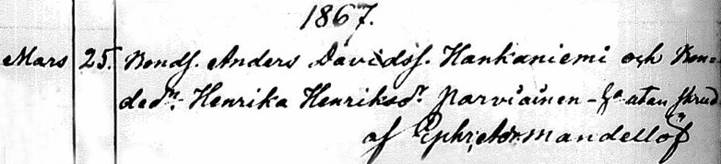 1867.
Mars 25. Bonds. Anders Davidss. Hankaniemi och Bon-
dedr. Henrika Henriksdr. Parviainen - utan skrud
af